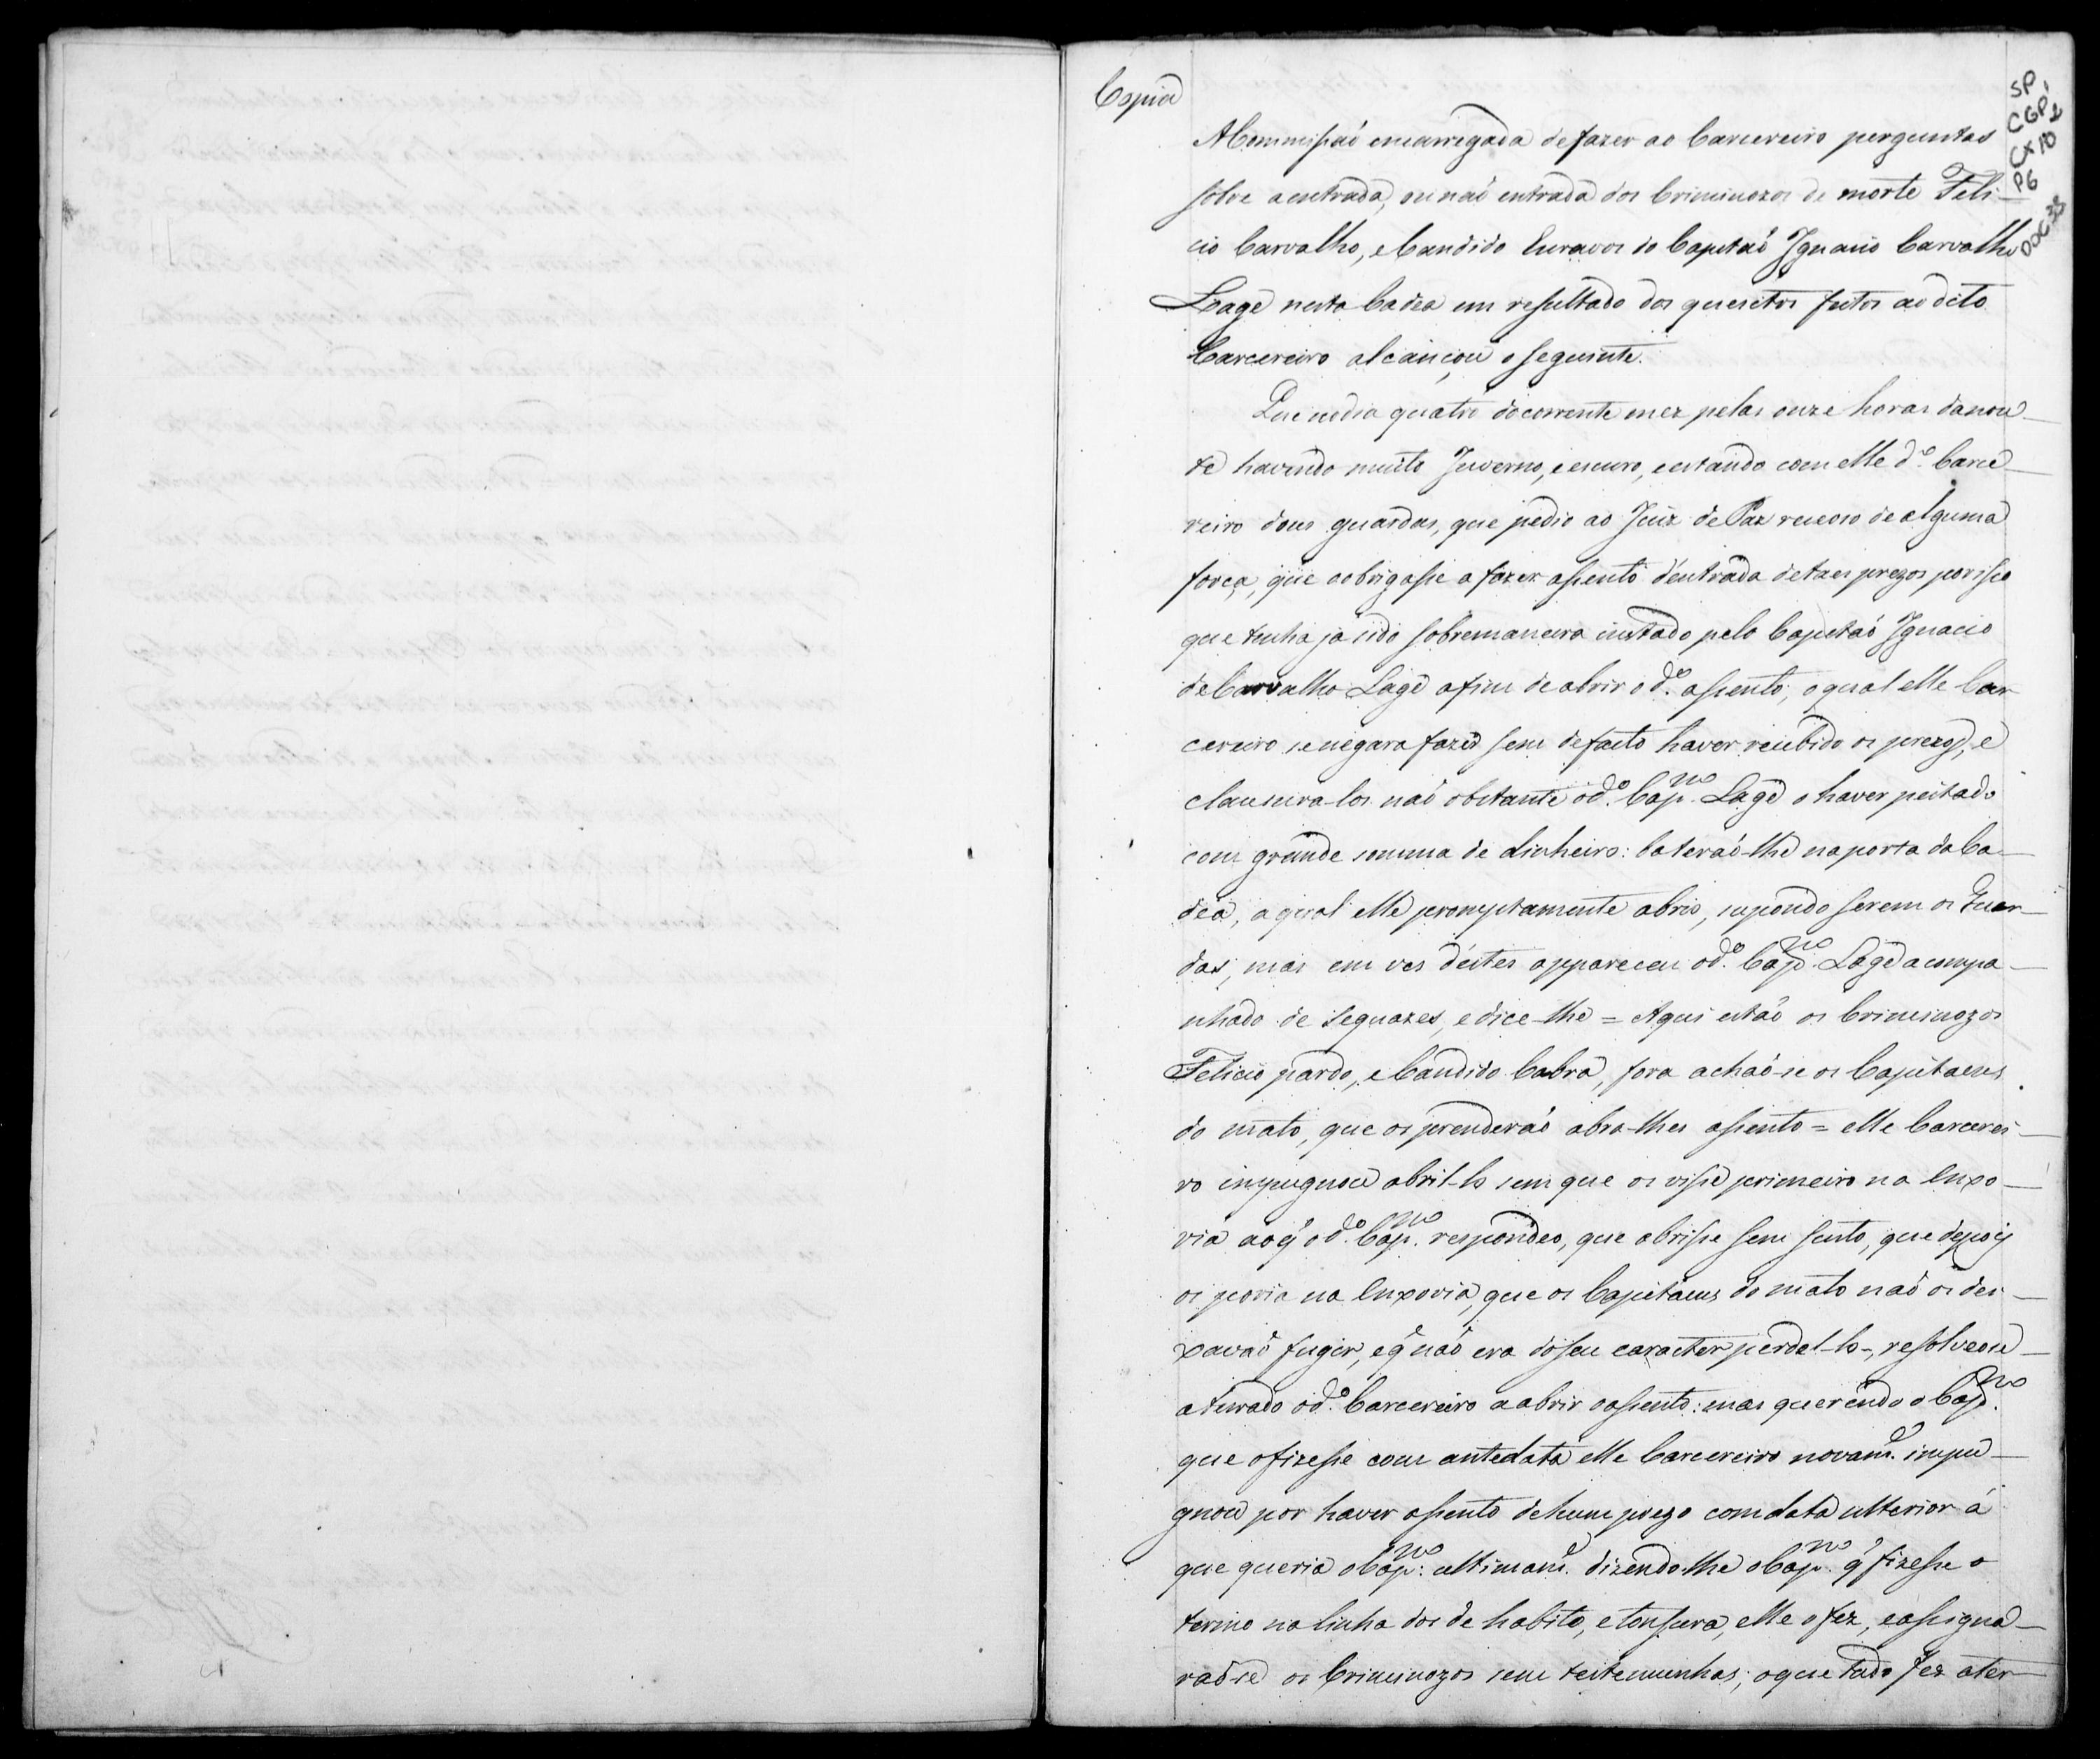 Copia
SP,
CGP2
Cx 10
P6
Doc 33
A Commissaõ encarregada de fazer ao Carcereiro perguntas
sobre a entrada, ou naõ entrada dos Criminozos de morte Feli-
cio Carvalho, e Candido Escravos do Capitaõ Ignacio Carvalho
Lage nesta Cadea em resultado dos quesitos feitos ao dito
Carcereiro alcançou o seguinte.
Que no dia quatro do corrente mez pelas onze horas da nou-
te havendo muito Inverno, e escuro, e estando com elle d.º Carce-
reiro dous guardas, que pedio ao Juiz de Paz receoso de alguma
força, que o obrigasse a fazer assento d'entrada de taes prezos por isso
que tinha já sido sobremaneira instado pelo Capitaõ Ignacio
de Carvalho Lage afim de abrir o d.º assento, o qual elle Car-
cereiro se negara fazer sem de facto haver recebido os prezos, e
clausura-los naõ obstante o d.º Cap.m Lage o haver peitado
com grande somma de dinheiro: bateraõ-lhe na porta da Ca-
dea, a qual elle promptamente abrio, supondo serem os Guar-
das, mas em ves d'estes appareceu o d.º Cap.m Lage acompa-
nhado de sequazes, e dice-lhe = Aqui estaõ os Criminozos
Felicio pardo, e Candido Cabra, fora achaõ-se os Capitaens
do mato, que os prenderaõ abra-lhes assento = elle Carcerei-
ro impugnou abril-lo sem que os visse primeiro na Enxo-
via ao q' o d.º Cap.m respondeo, que abrisse sem susto, que depois
os poria na Enxovia, que os Capitaens do mato naõ os dei-
xavaõ fugir, e q' naõ era do seu caracter perdel-lo-, resolveou
aterrado o d.º Carcereiro a abrir o assento: mas querendo o Cap.m
que o fizesse com antedata elle Carcereiro novam.e impu-
gnou por haver assento de hum prezo com data ulterior á
que queria o Cap.m: ultimam.e dizendo-lhe o Cap.m q' fizesse o
termo na linha dos de habito, e tonsura, elle o fez, e assigna-
raõ-se os Criminozos sem testemunhas; o que tudo fez ater-